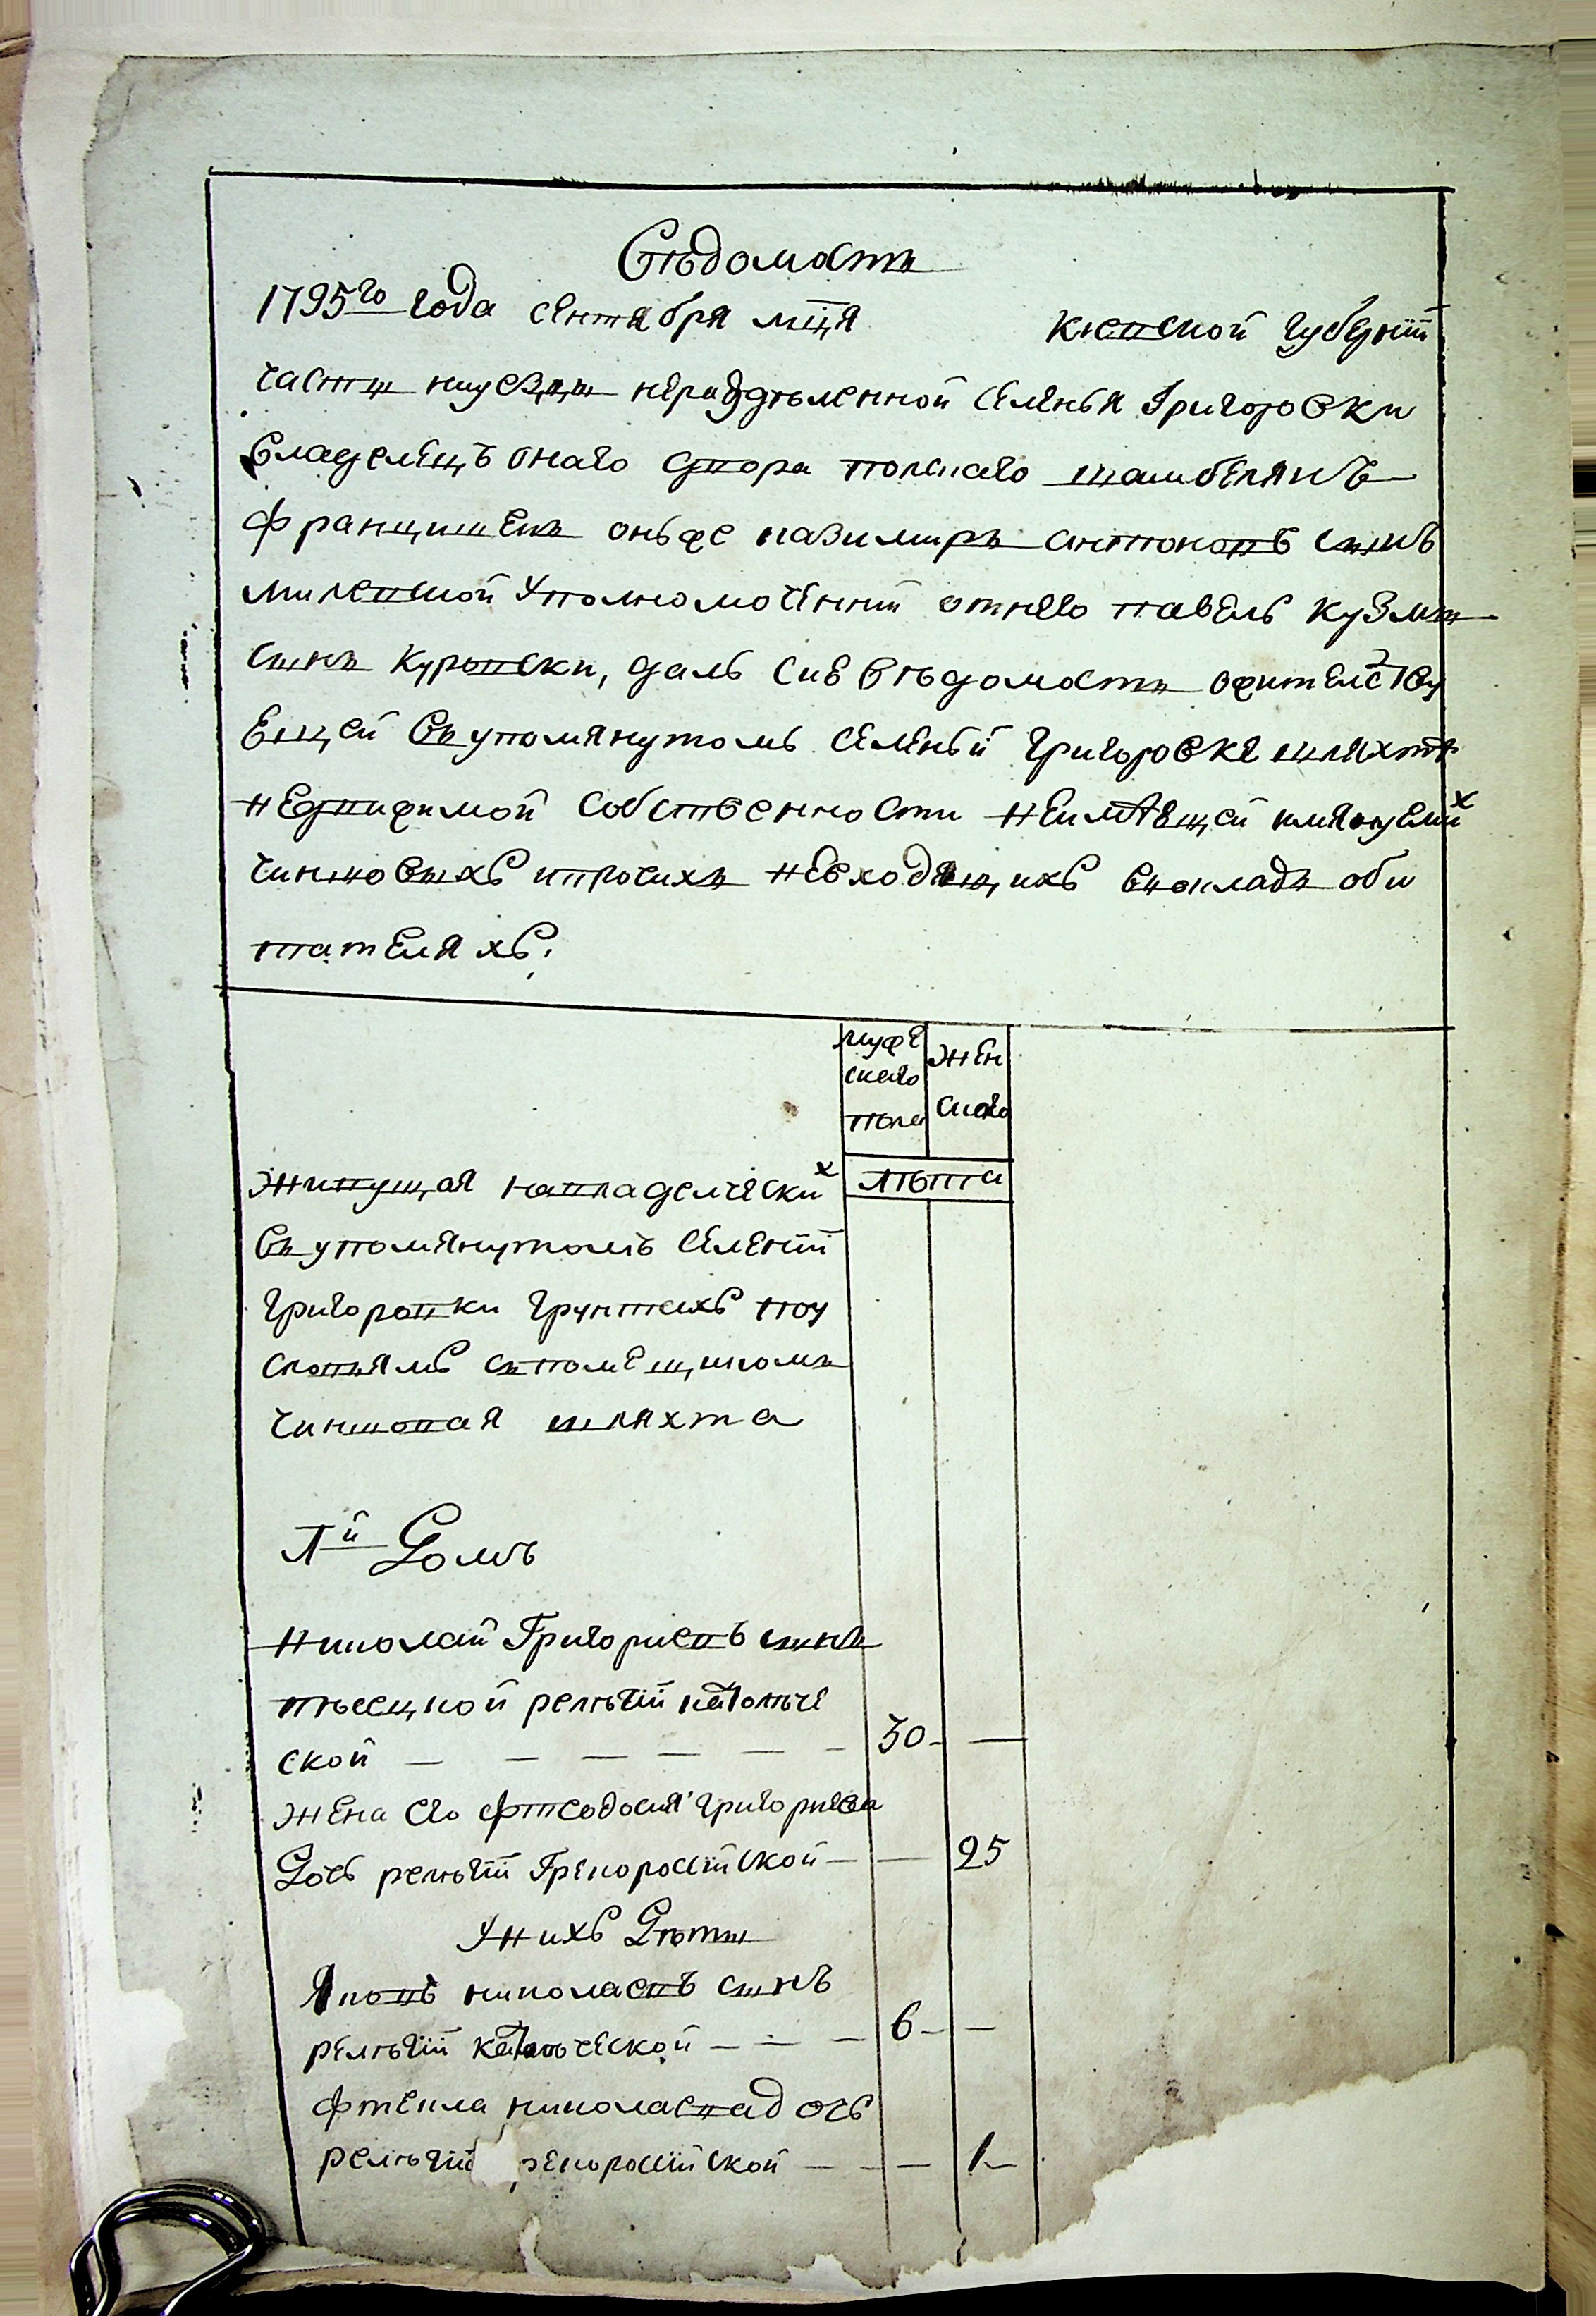 Вѣдомость
1795го года сентября мца Киевской губернiи
части ниуезды неразделенной селенья Григоровки
Владелецъ онаго двора полскаго шамбелянъ
францишекъ онъже казимиръ антоновъ сынъ
милевской Уполномоченнiй отнего павелъ кузмы
сынъ Куровски, далъ сие вѣдомость ожителству
ещей въупомянутомъ селеньи григоровке шляхтѣ
недвижимой собственности неимѣещей имянуемых
чиншовыхъ ипрочихъ невходящихъ воокладъ оби
тателяхъ:
муже скаго пола
жен скаго
Живущая навладелческих
лѣта
въупомянутомъ селенiи
григоровки грунтахъ поу
словиямъ спомещикомъ
чиншовая шляхта
1й Домъ
Николай Григориевъ сынъ
релѣгiи католиче
ской — — — — — — 30 — —
жена его фтеодосия григориева
Дочь релѣгiи Грекоросiйской — — 25
Унихъ Дѣти
Яковъ николаевъ сынъ
релѣгiи католической — — — 6 — —
фтекла николаевадочь
релѣгiи рекоросiйской — — — 1 —